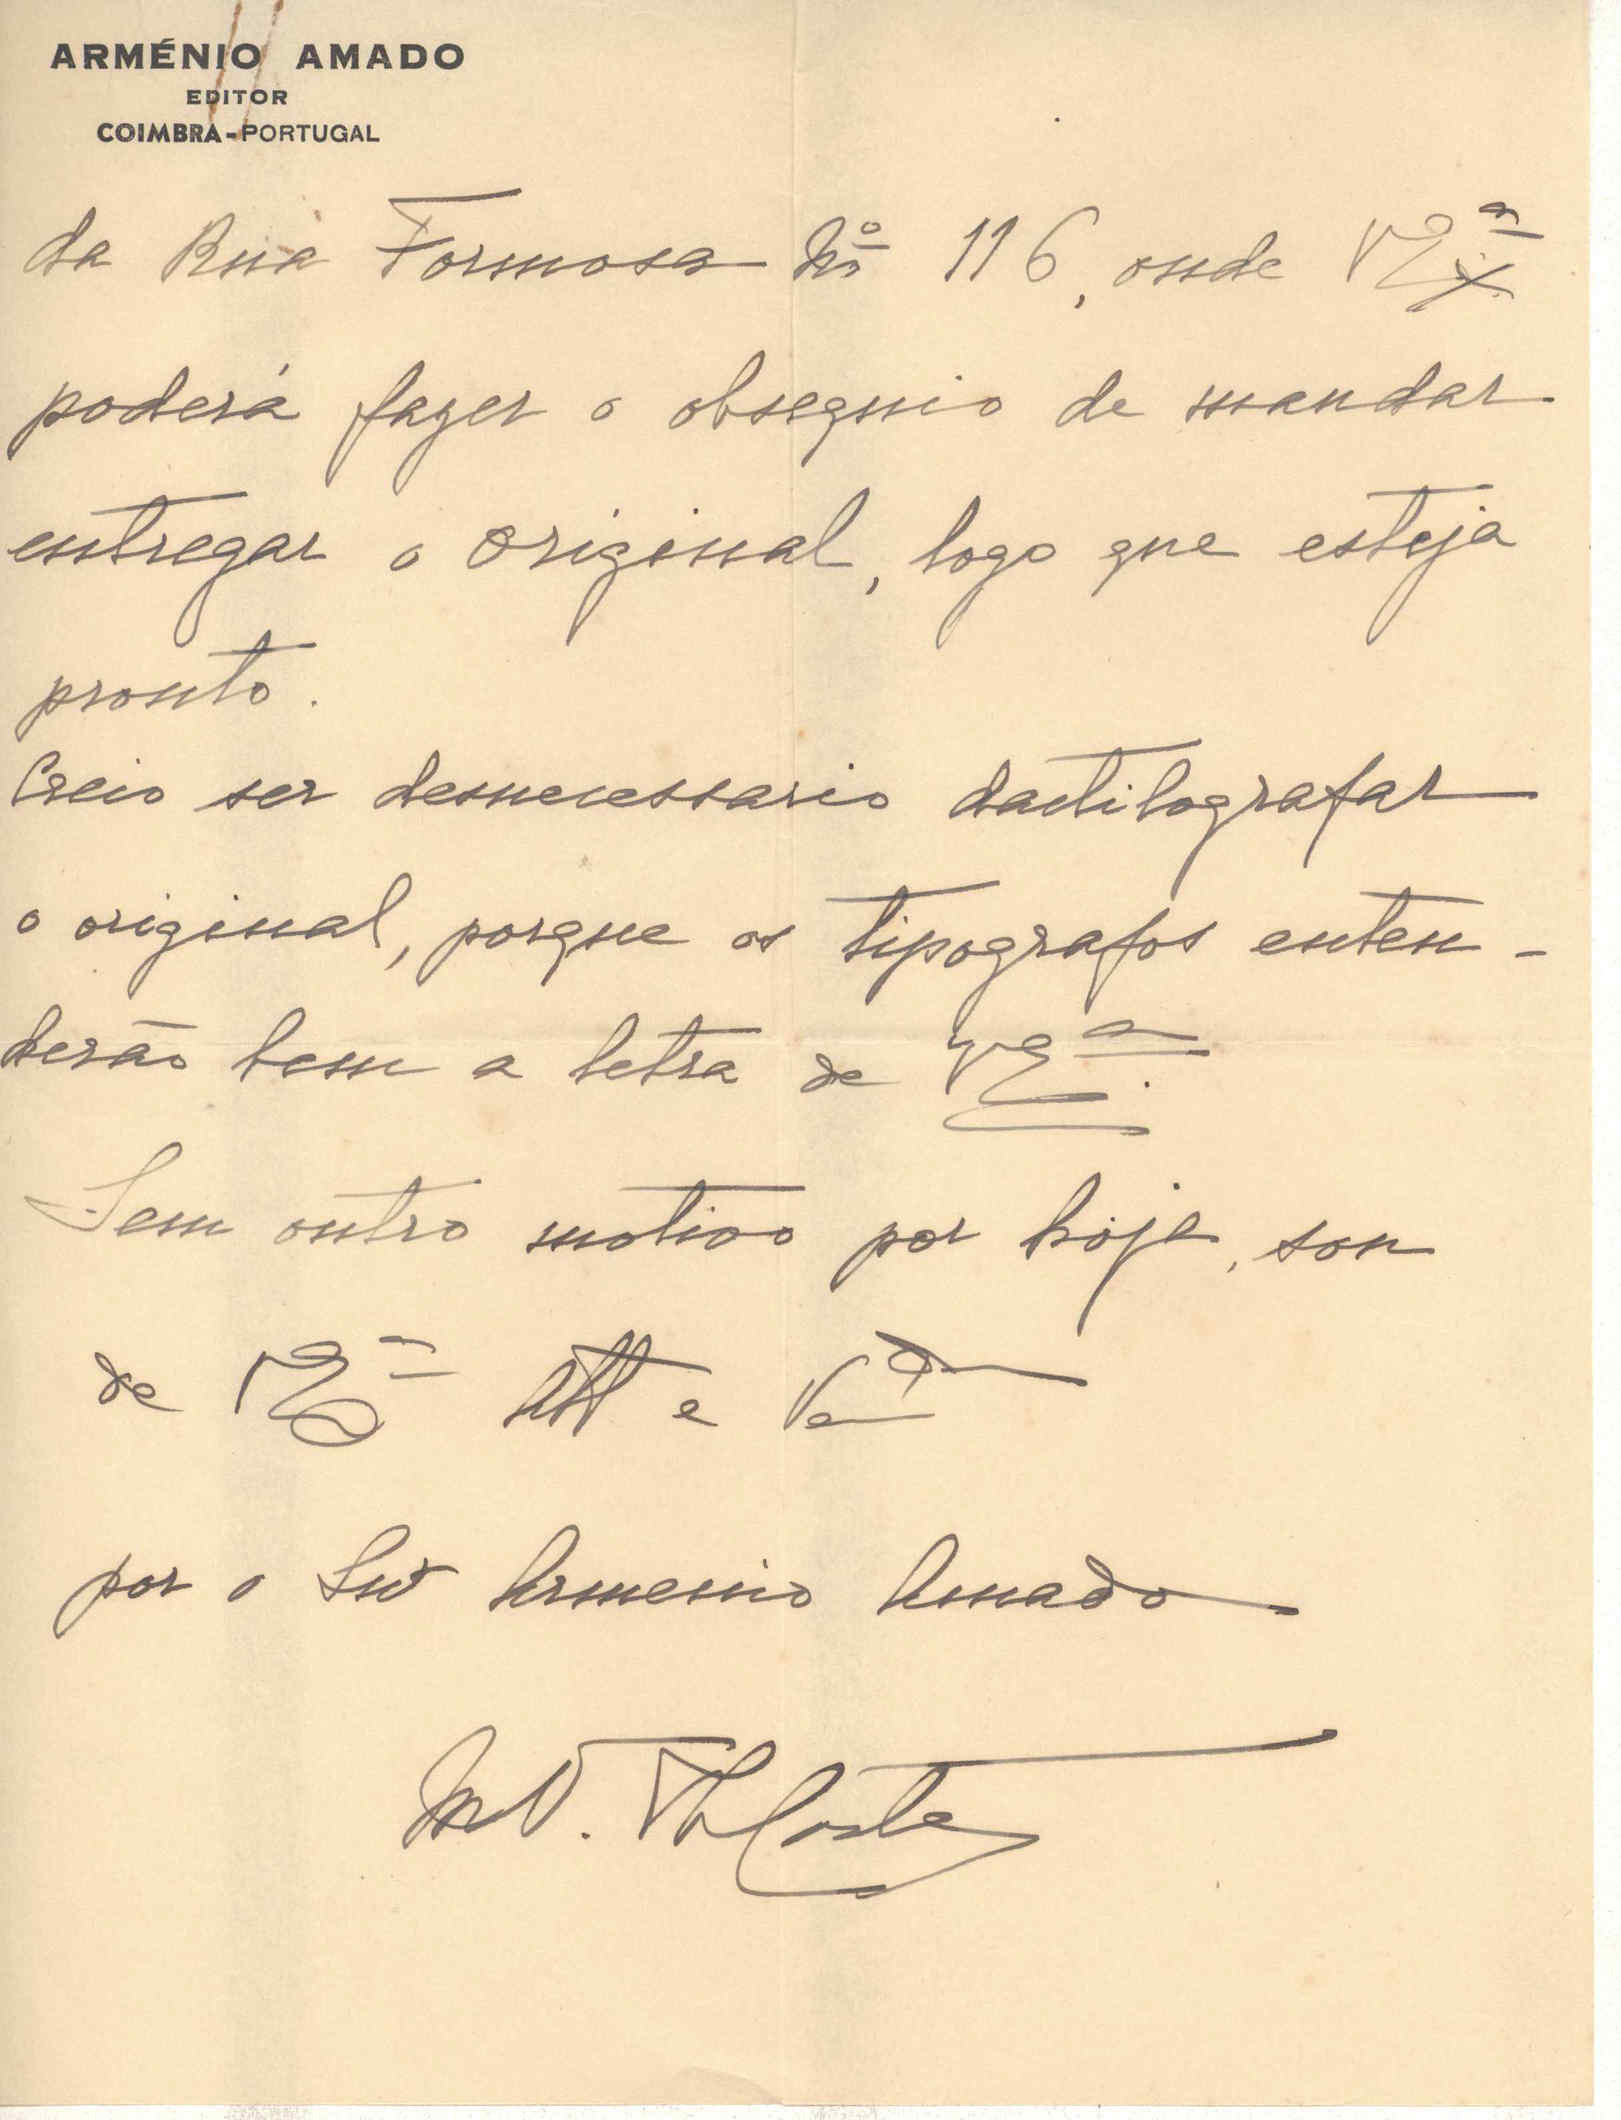 ARMÉNIO AMADO
EDITOR
COIMBRA-PORTUGAL
da Rua Formosa Nº 116, onde V. Ex.ª
poderá fazer o obsequio de mandar
entregar o original, logo que esteja
pronto.
Creio ser desnecessario dactilografar
o original, porque os tipografos enten-
derão bem a letra de V. Ex.ª
Sem outro motivo por hoje, sou
de V. Ex.ª Att e
por o Snr Armenio Amado
Costa